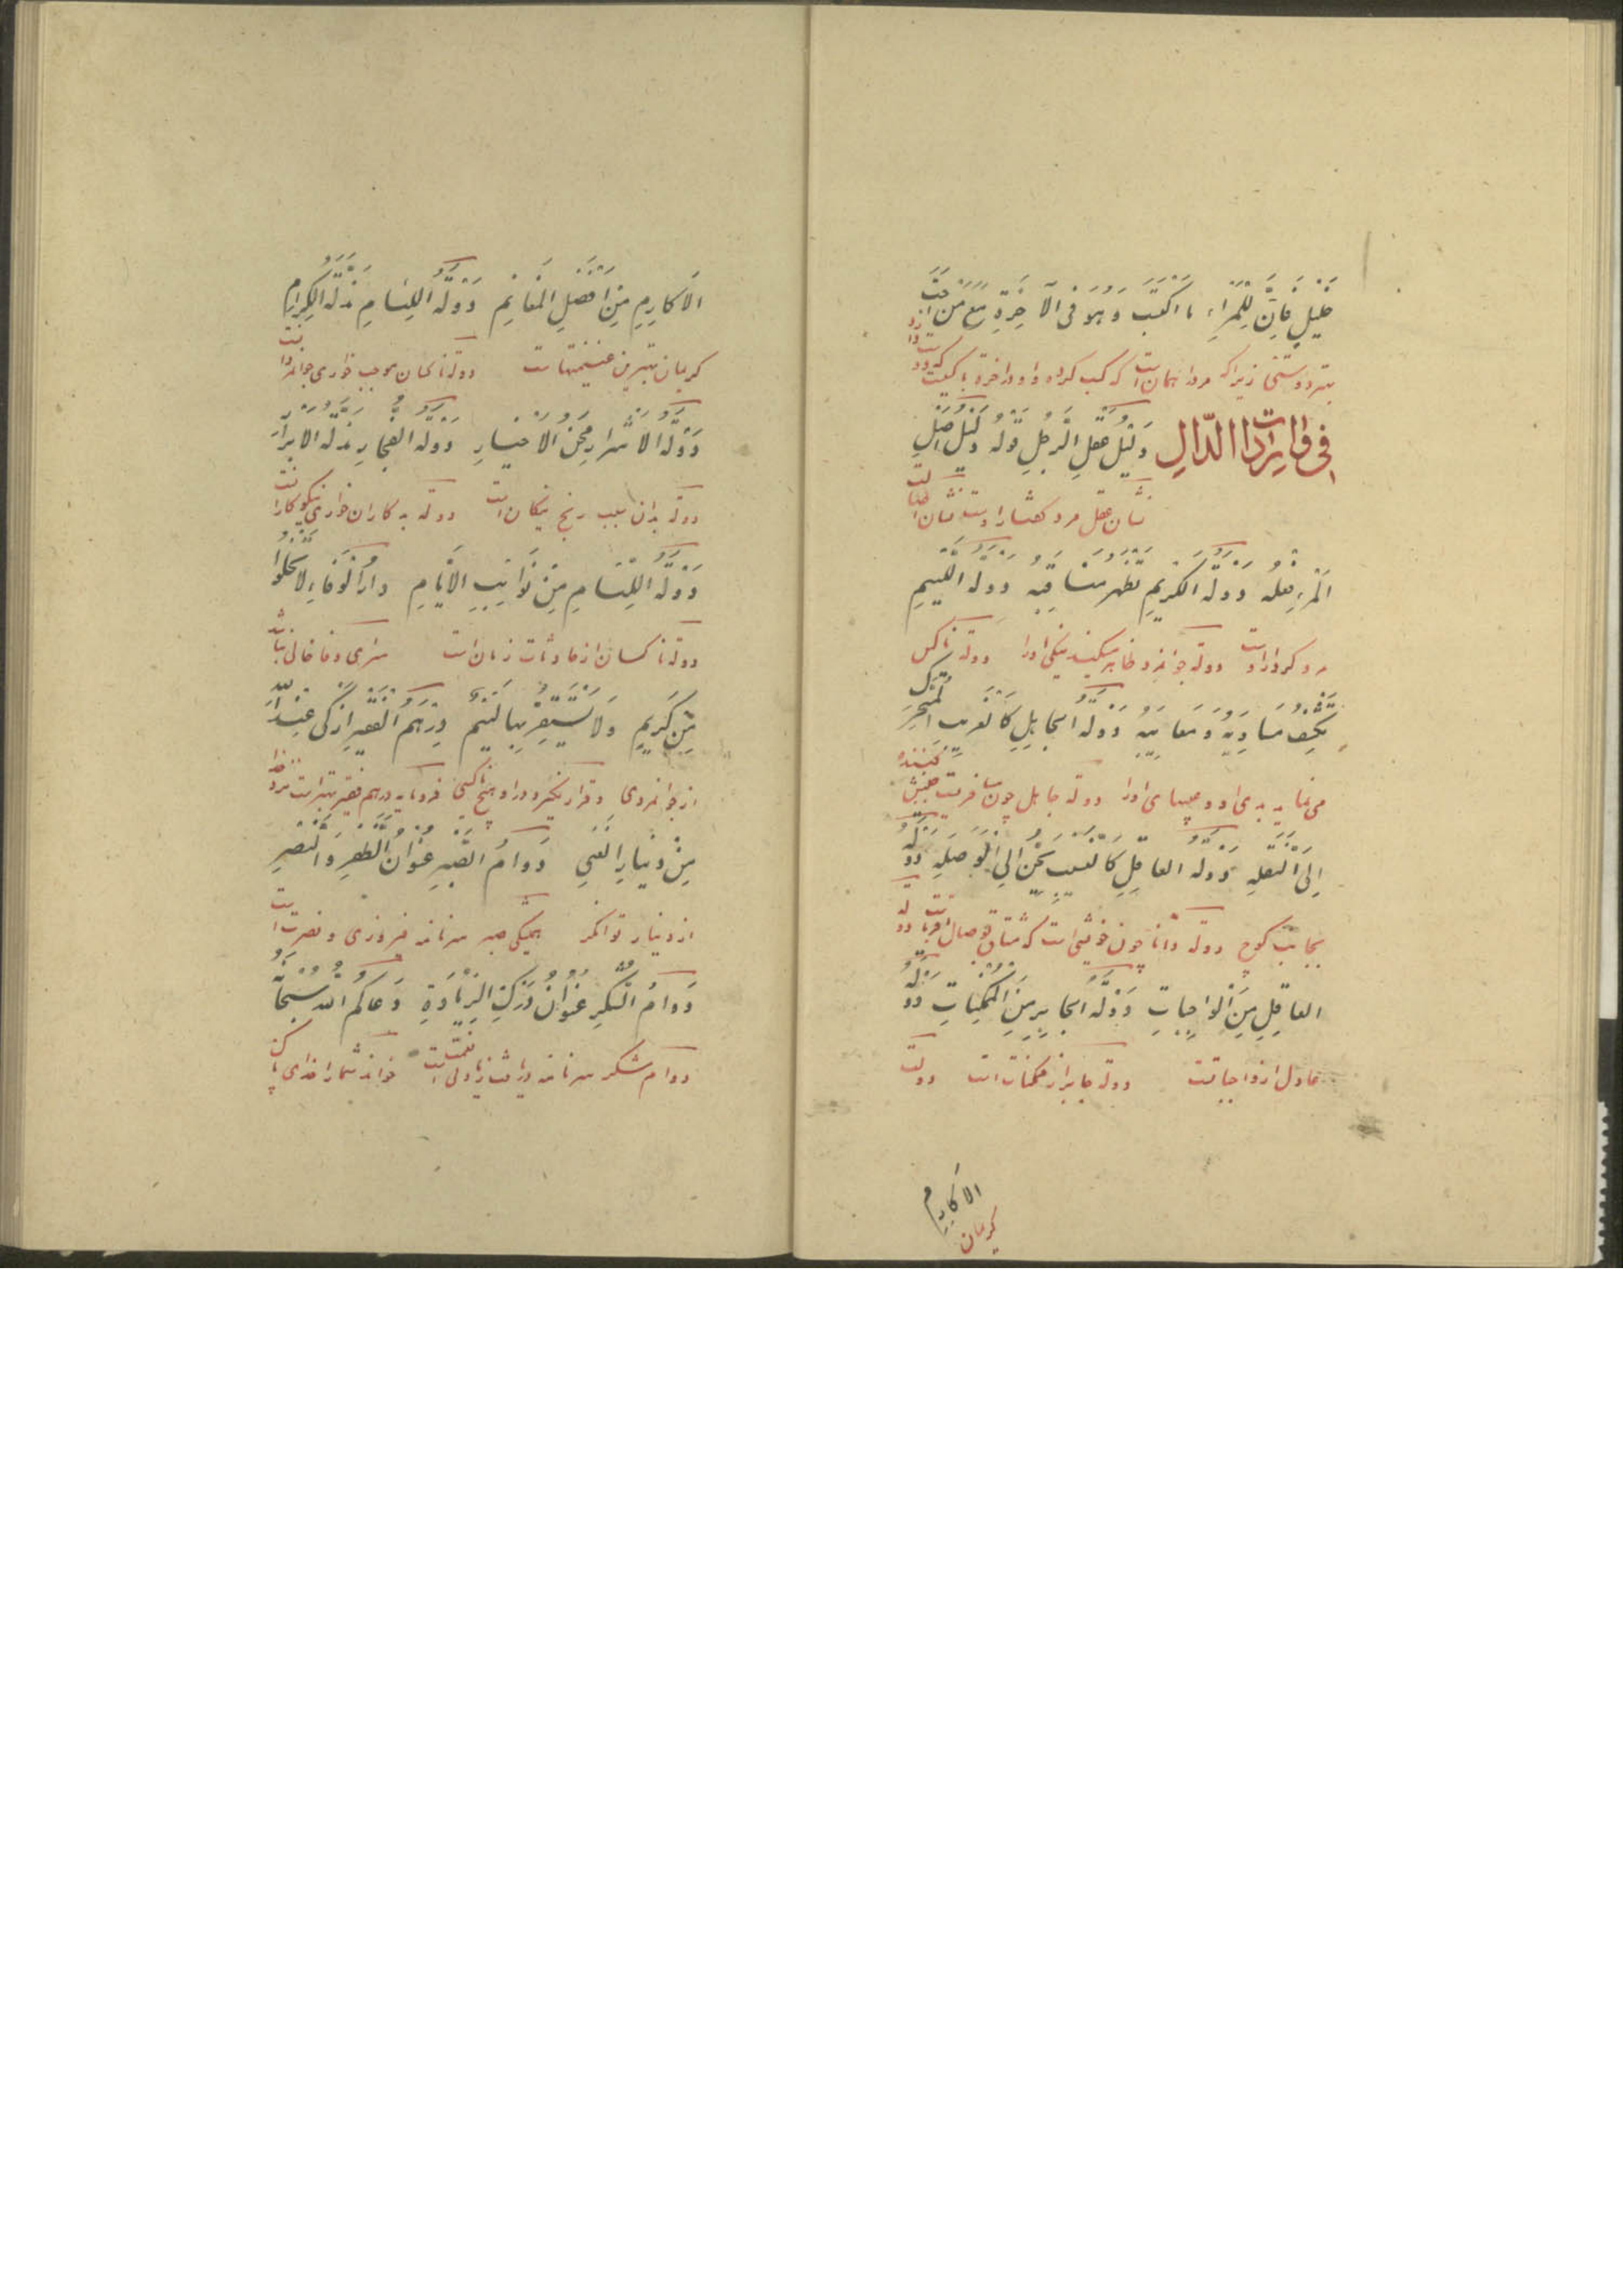 خَلِيلٍ فَإِنَّ لِلْمَرْءِ مَا اكْتَسَبَ وَهُوَ فِى الْآخِرَةِ مَعَ مَنْ أَحَبَّ
بهتر دوستى زيراكه مرد را همان است كه كسب كرده و او در اخرة با كسيست كه دوست دارد
فى وايرادات الدّالِ دَلِيلُ عَقْلِ الرَّجُلِ قَوْلُهُ دَلِيلُ أَصْلِ
نشان عقل مرد گفتار اوست نشان
الْمَرْءِ فِعْلُهُ دَوْلَةُ الْكَرِيمِ تُظْهِرُ مَنَاقِبَهُ دَوْلَةُ اللَّئِيمِ
مرد كردار اوست دولة جوانمرد ظاهر ميكند نيكى او را دولة ناكس
تَكْشِفُ مَسَاوِيَهُ وَمَعَايِبَهُ دَوْلَةُ الْجَاهِلِ كَالْغَرِيبِ الْمُتَحَرِّكِ
مى نمايد بدى او و عيبهاى او را دولة جاهل چون مسافريست جنبش كننده
إِلَى النُّقْلَةِ دَوْلَةُ الْعَاقِلِ كَالنَّسِيبِ يَحِنُّ إِلَى الْوُصْلَةِ دَوْلَةُ
بجانب كوچ دولة دانا چون خويشى است كه مشتاق بوصال اقرباست دولة
الْعَاقِلِ مِنَ الْوَاجِبَاتِ دَوْلَةُ الْجَابِرِ مِنَ الْمُمْكِنَاتِ دَوْلَةُ
عادل از واجباتست دولة جابر از ممكنات است دولت
الاكارم
كريمان
الْأَكَارِمِ مِنْ أَفْضَلِ الْمَغَانِمِ دَوْلَةُ اللِّئَامِ مَذَلَّةُ الْكِرَامِ
كريمان بهترين غنيمتهاست دولة ناكسان موجب خوارى جوانمردانست
دَوْلَةُ الْأَشْرَارِ مِحَنُ الْأَخْيَارِ دَوْلَةُ الْفُجَّارِ مَذَلَّةُ الْأَبْرَارِ
دولة بدان سبب رنج نيكان است دولة بدكاران خوارى نيكوكارانست
دَوْلَةُ اللِّئَامِ مِنْ نَوَائِبِ الْأَيَّامِ دَارُ الْوَفَاءِ لَا تَخْلُو
دولة ناكسان از حادثات زمان است سراى وفا خالى نباشد
مِنْ كَرِيمٍ وَلَا يَسْتَقِرُّ بِهَا لَئِيمٌ دِرْهَمُ الْفَقِيرِ أَزْكَى عِنْدَ اللّه
از جوانمردى و قرار نگيرد در او هيچ ناكسى فرومايه درهم فقير بهتر است نزد خدا
مِنْ دِينَارِ الْغَنِيِّ دَوَامُ الصَّبْرِ عُنْوَانُ الظَّفَرِ وَالنَّصْرِ
از دينار توانگر هميشگى صبر سرنامه فيروزى و نصرت است
دَوَامُ الشُّكْرِ عُنْوَانُ دَرْكِ الزِّيَادَةِ دَعَاكُمُ اللّهُ سُبْحَانَهُ
دوام شكر سرنامه دريافت زيادتى نعمت است خواند شما را خداى پاك